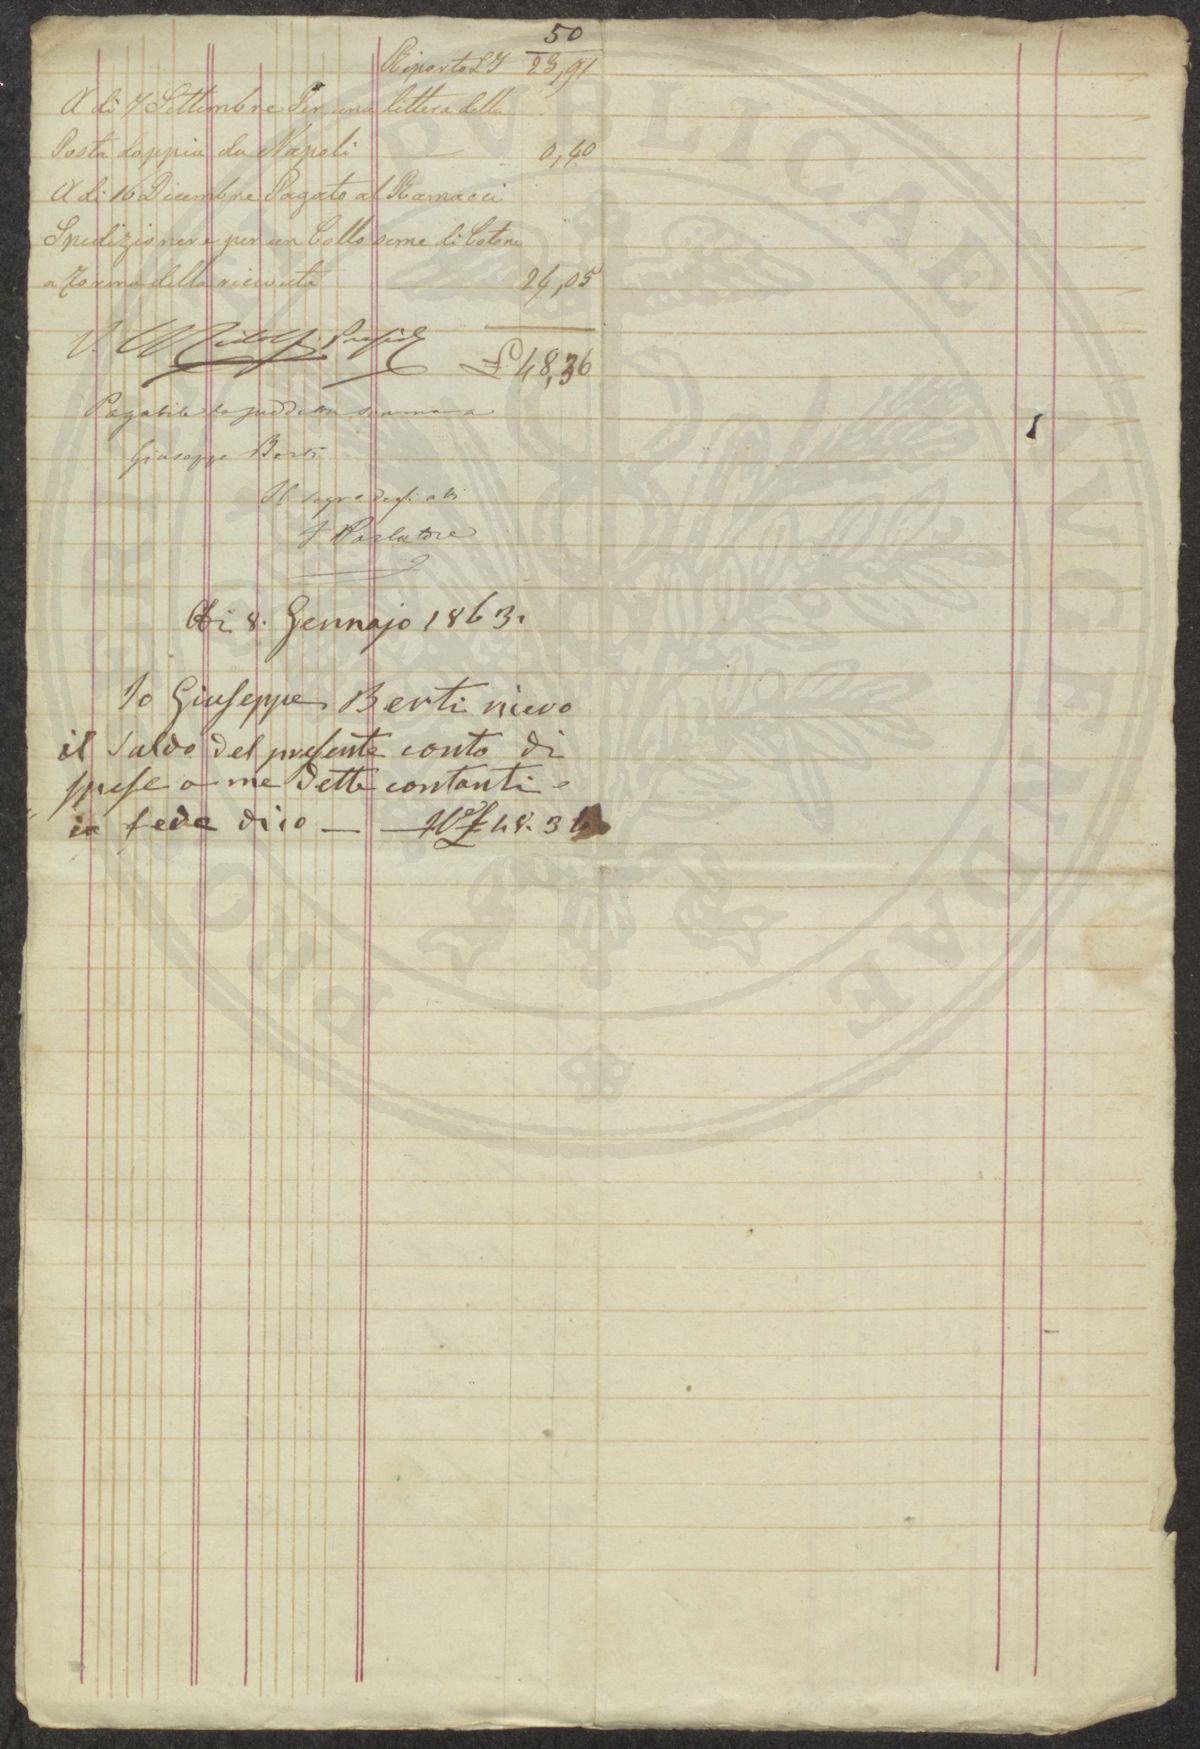 50
Riporto £I 23,91
A dì 7 Settembre Per una lettera della
Posta doppia da Napoli 0,40
A dì 16 Dicembre Pagato al Ramacci
Spedizioniere per un Collo seme di Cotone
a forma della ricevuta 24,05
V. Ridolfi Presid
£ 48,36
Pagabile la suddetta somma a
Giuseppe Berti
Il segr degli atti
F Parlatore
Adi 8. Gennajo 1863.
Io Giuseppe Berti ricevo
il saldo del presente conto di
spese a me dette contanti e
in fede dico — — £ 48. 36
PUBLICAE LVCENDAE PRO